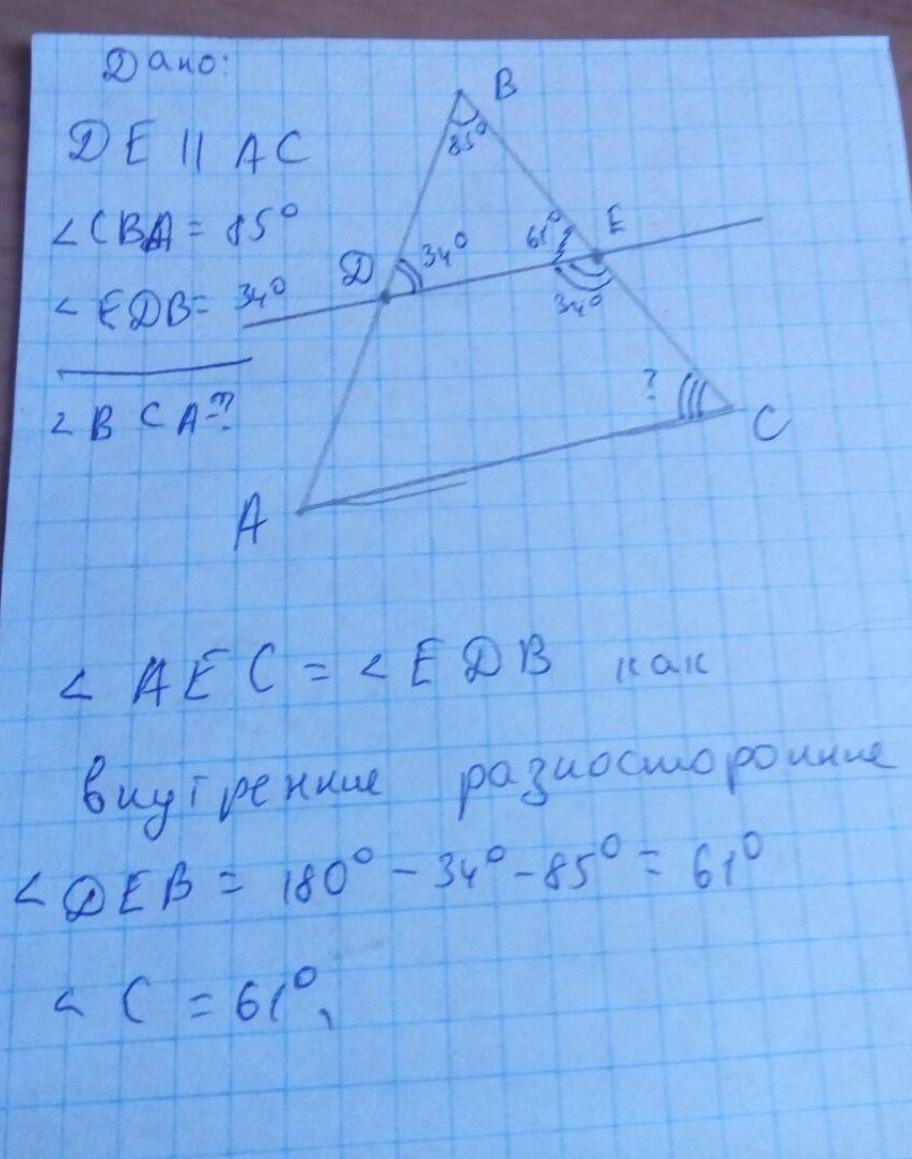 Дано:
DE || AC
<CBA = 85°
<EDB= 34°
<BCA-?
B
85°
D
34°
61°
E
34°
?
C
A
< AEC = <EDB как
внутренние разносторонние
<DEB = 180° - 34° - 85° = 61°
< C = 61°,